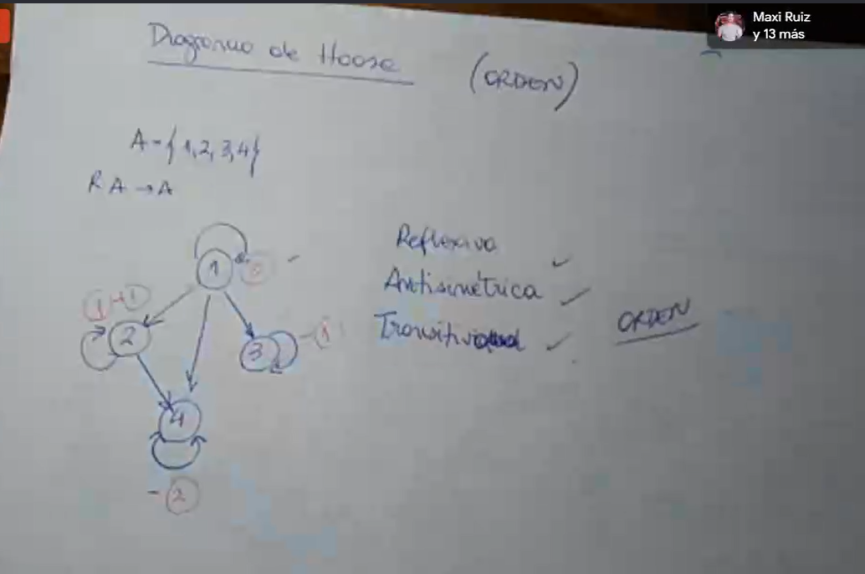 Maxi Ruiz
y 13 más
Diagrama de Hasse (ORDEN)
A = { 1, 2, 3, 4 }
R A → A
1 0
Reflexiva ✓
Antisimétrica ✓
1 → 1
2
3 - 1
Transitividad ✓
ORDEN
4
- 2